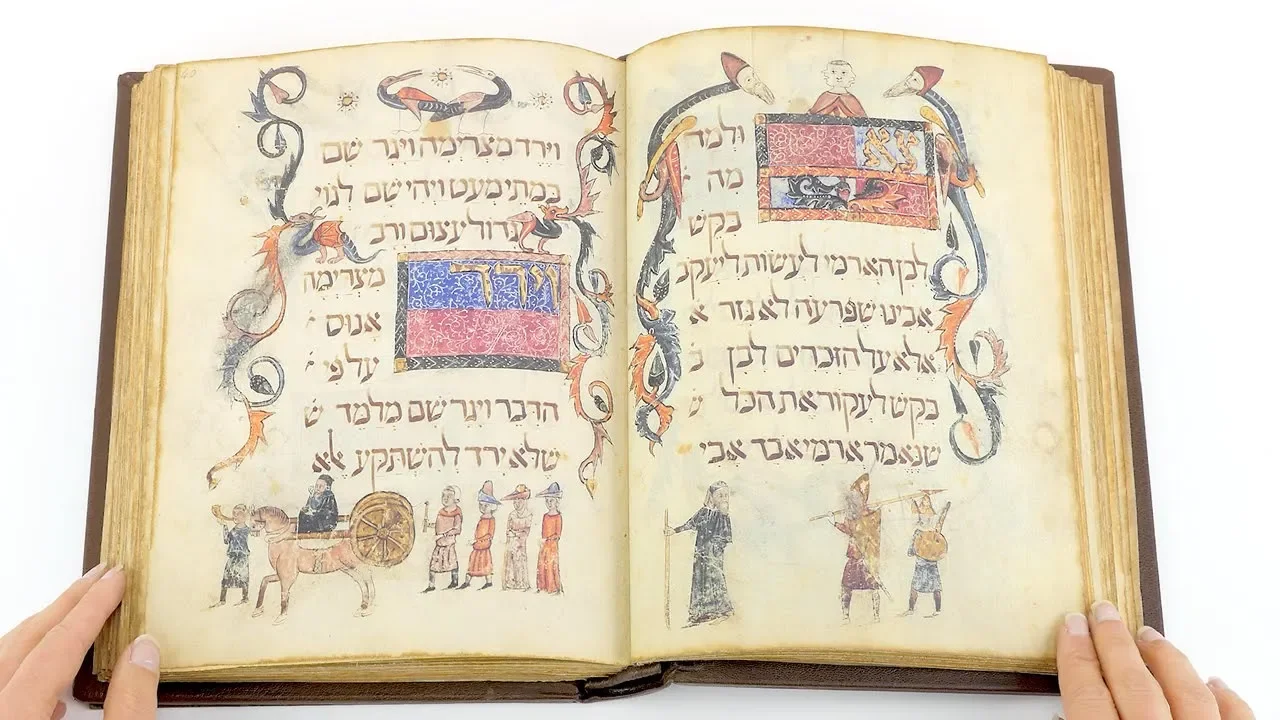 צא ולמד
מה
בקש
לבן הארמי לעשות ליעקב
אבינו שפרעה לא גזר א
אלא על הזכרים לבן ב
בקש לעקור את הכל ש
שנאמר ארמי אבד אבי
וירד מצרימה ויגר שם
במתי מעט ויהי שם לגוי
גדול עצום ורב
וירד מצרימה
אנוס
על פי
הדבר ויגר שם מלמד ש
שלא ירד להשתקע אלא